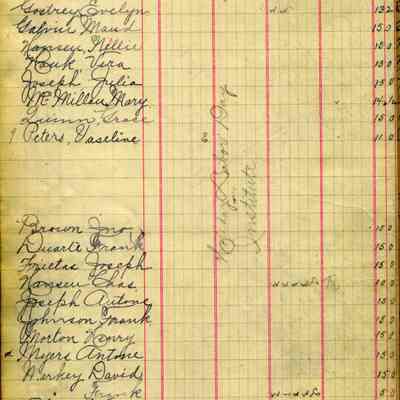 Godfrey Evelyn 13.2
Garvie Maud 15.0
Hansen, Nellie 10.0
Hauk Vera 15.0
Joseph Julia 15.0
McMillen, Mary
Quinn, Grace 15.0
Peters, Vaseline 11.0
Labor Day
Institute
Brown Jno, 15.0
Duarte Frank 15.0
Freitas Joseph 15.0
Hansen Chas. 10.0
Joseph Antone 15.0
Johnson Frank 15.0
Morton Henry 15.0
Myers Antone 15.0
Merkey David 15.0
Frank 5.0